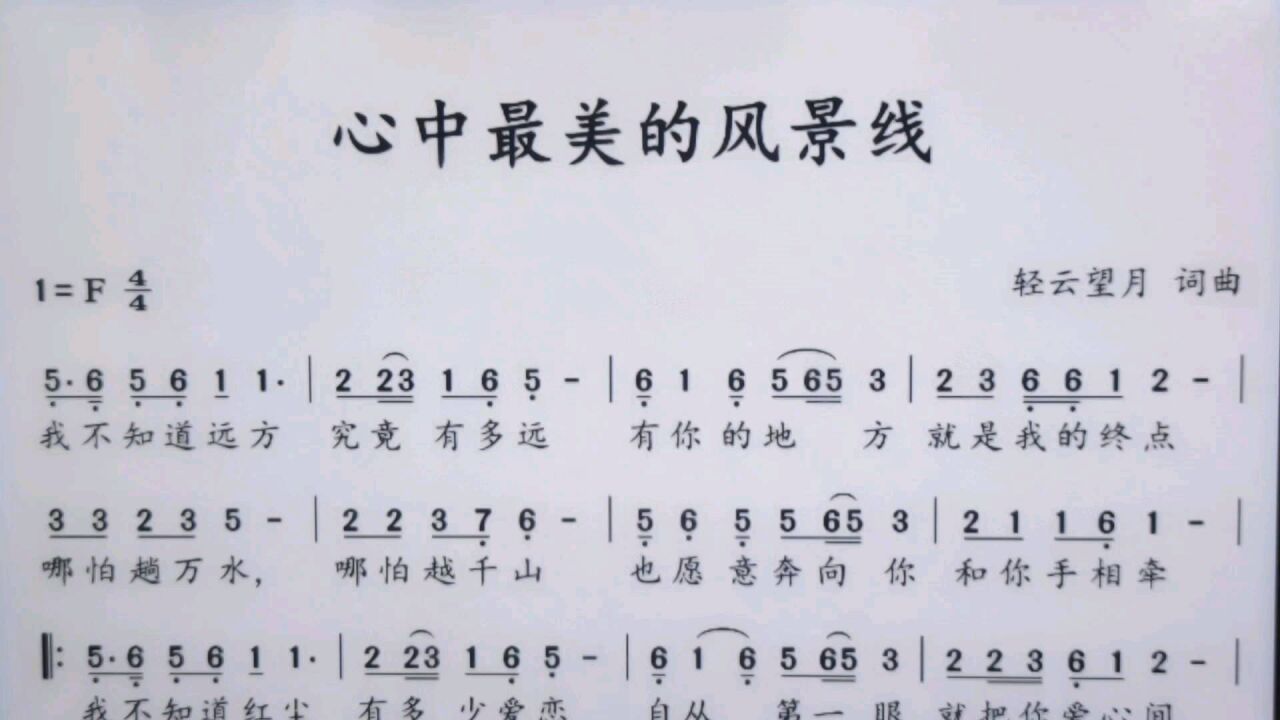 心中最美的风景线
1=F 4/4 轻云望月 词曲
5·6 5 6 1 1· | 2 23 1 6 5 - | 6 1 6 5 65 3 | 2 3 6 6 1 2 - |
我不知道远方 究竟 有多远 有你的地 方 就是我的终点
3 3 2 3 5 - | 2 2 3 7 6 - | 5 6 5 5 65 3 | 2 1 1 6 1 - |
哪怕趟万水, 哪怕越千山 也愿意奔向 你 和你手相牵
‖: 5·6 5 6 1 1· | 2 23 1 6 5 - | 6 1 6 5 65 3 | 2 2 3 6 1 2 - |
我不知道红尘 有多 少爱恋 自从 第一眼 就把你爱心间